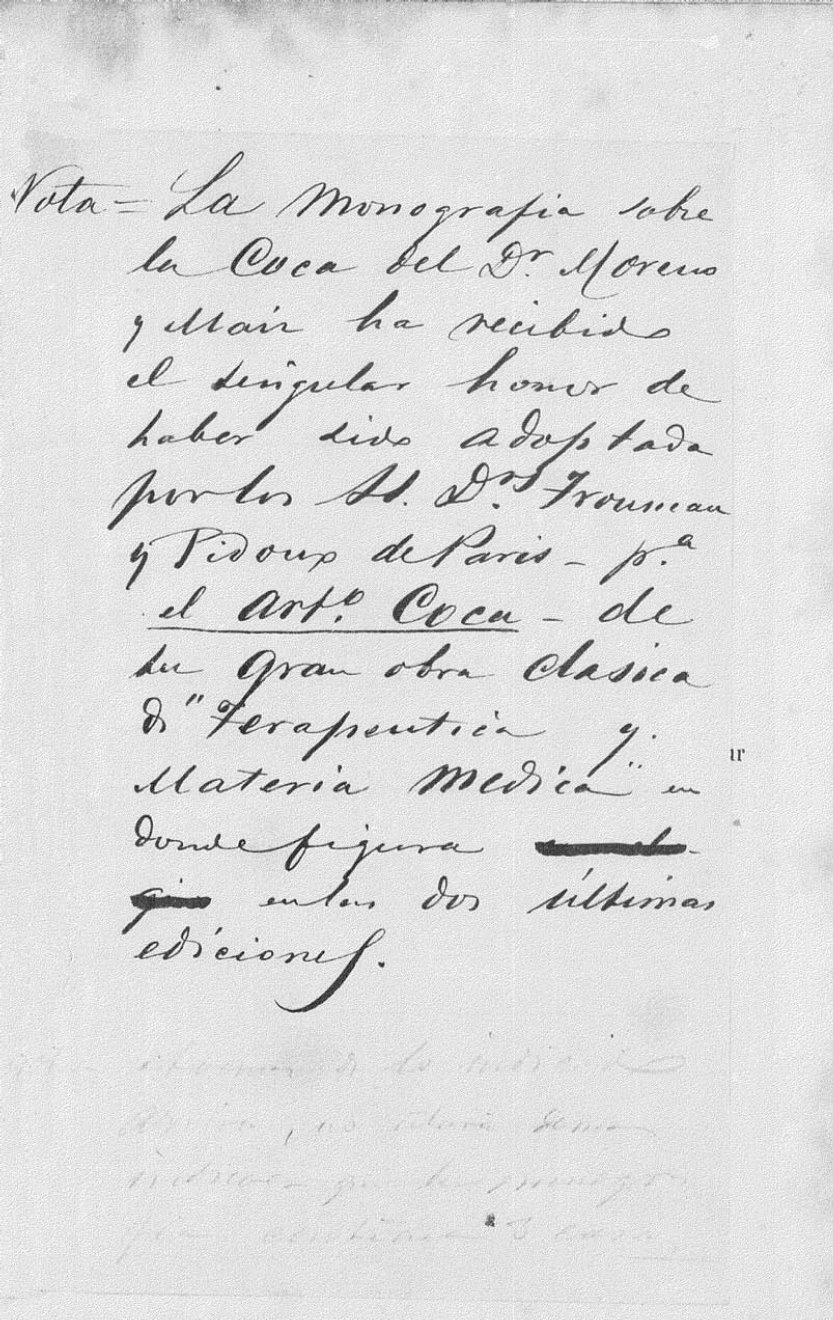 Nota = La Monografia sobre
la Coca del Dr. Moreno
y Maiz ha recibido
el singular honor de
haber sido adoptada
por los SS. Drs. Trousseau
y Pidoux de Paris - p.ª
el Artº. Coca - de
su gran obra clasica
de "Terapeutica y.
Materia Medica" en
donde figura
en las dos últimas
ediciones.
ur